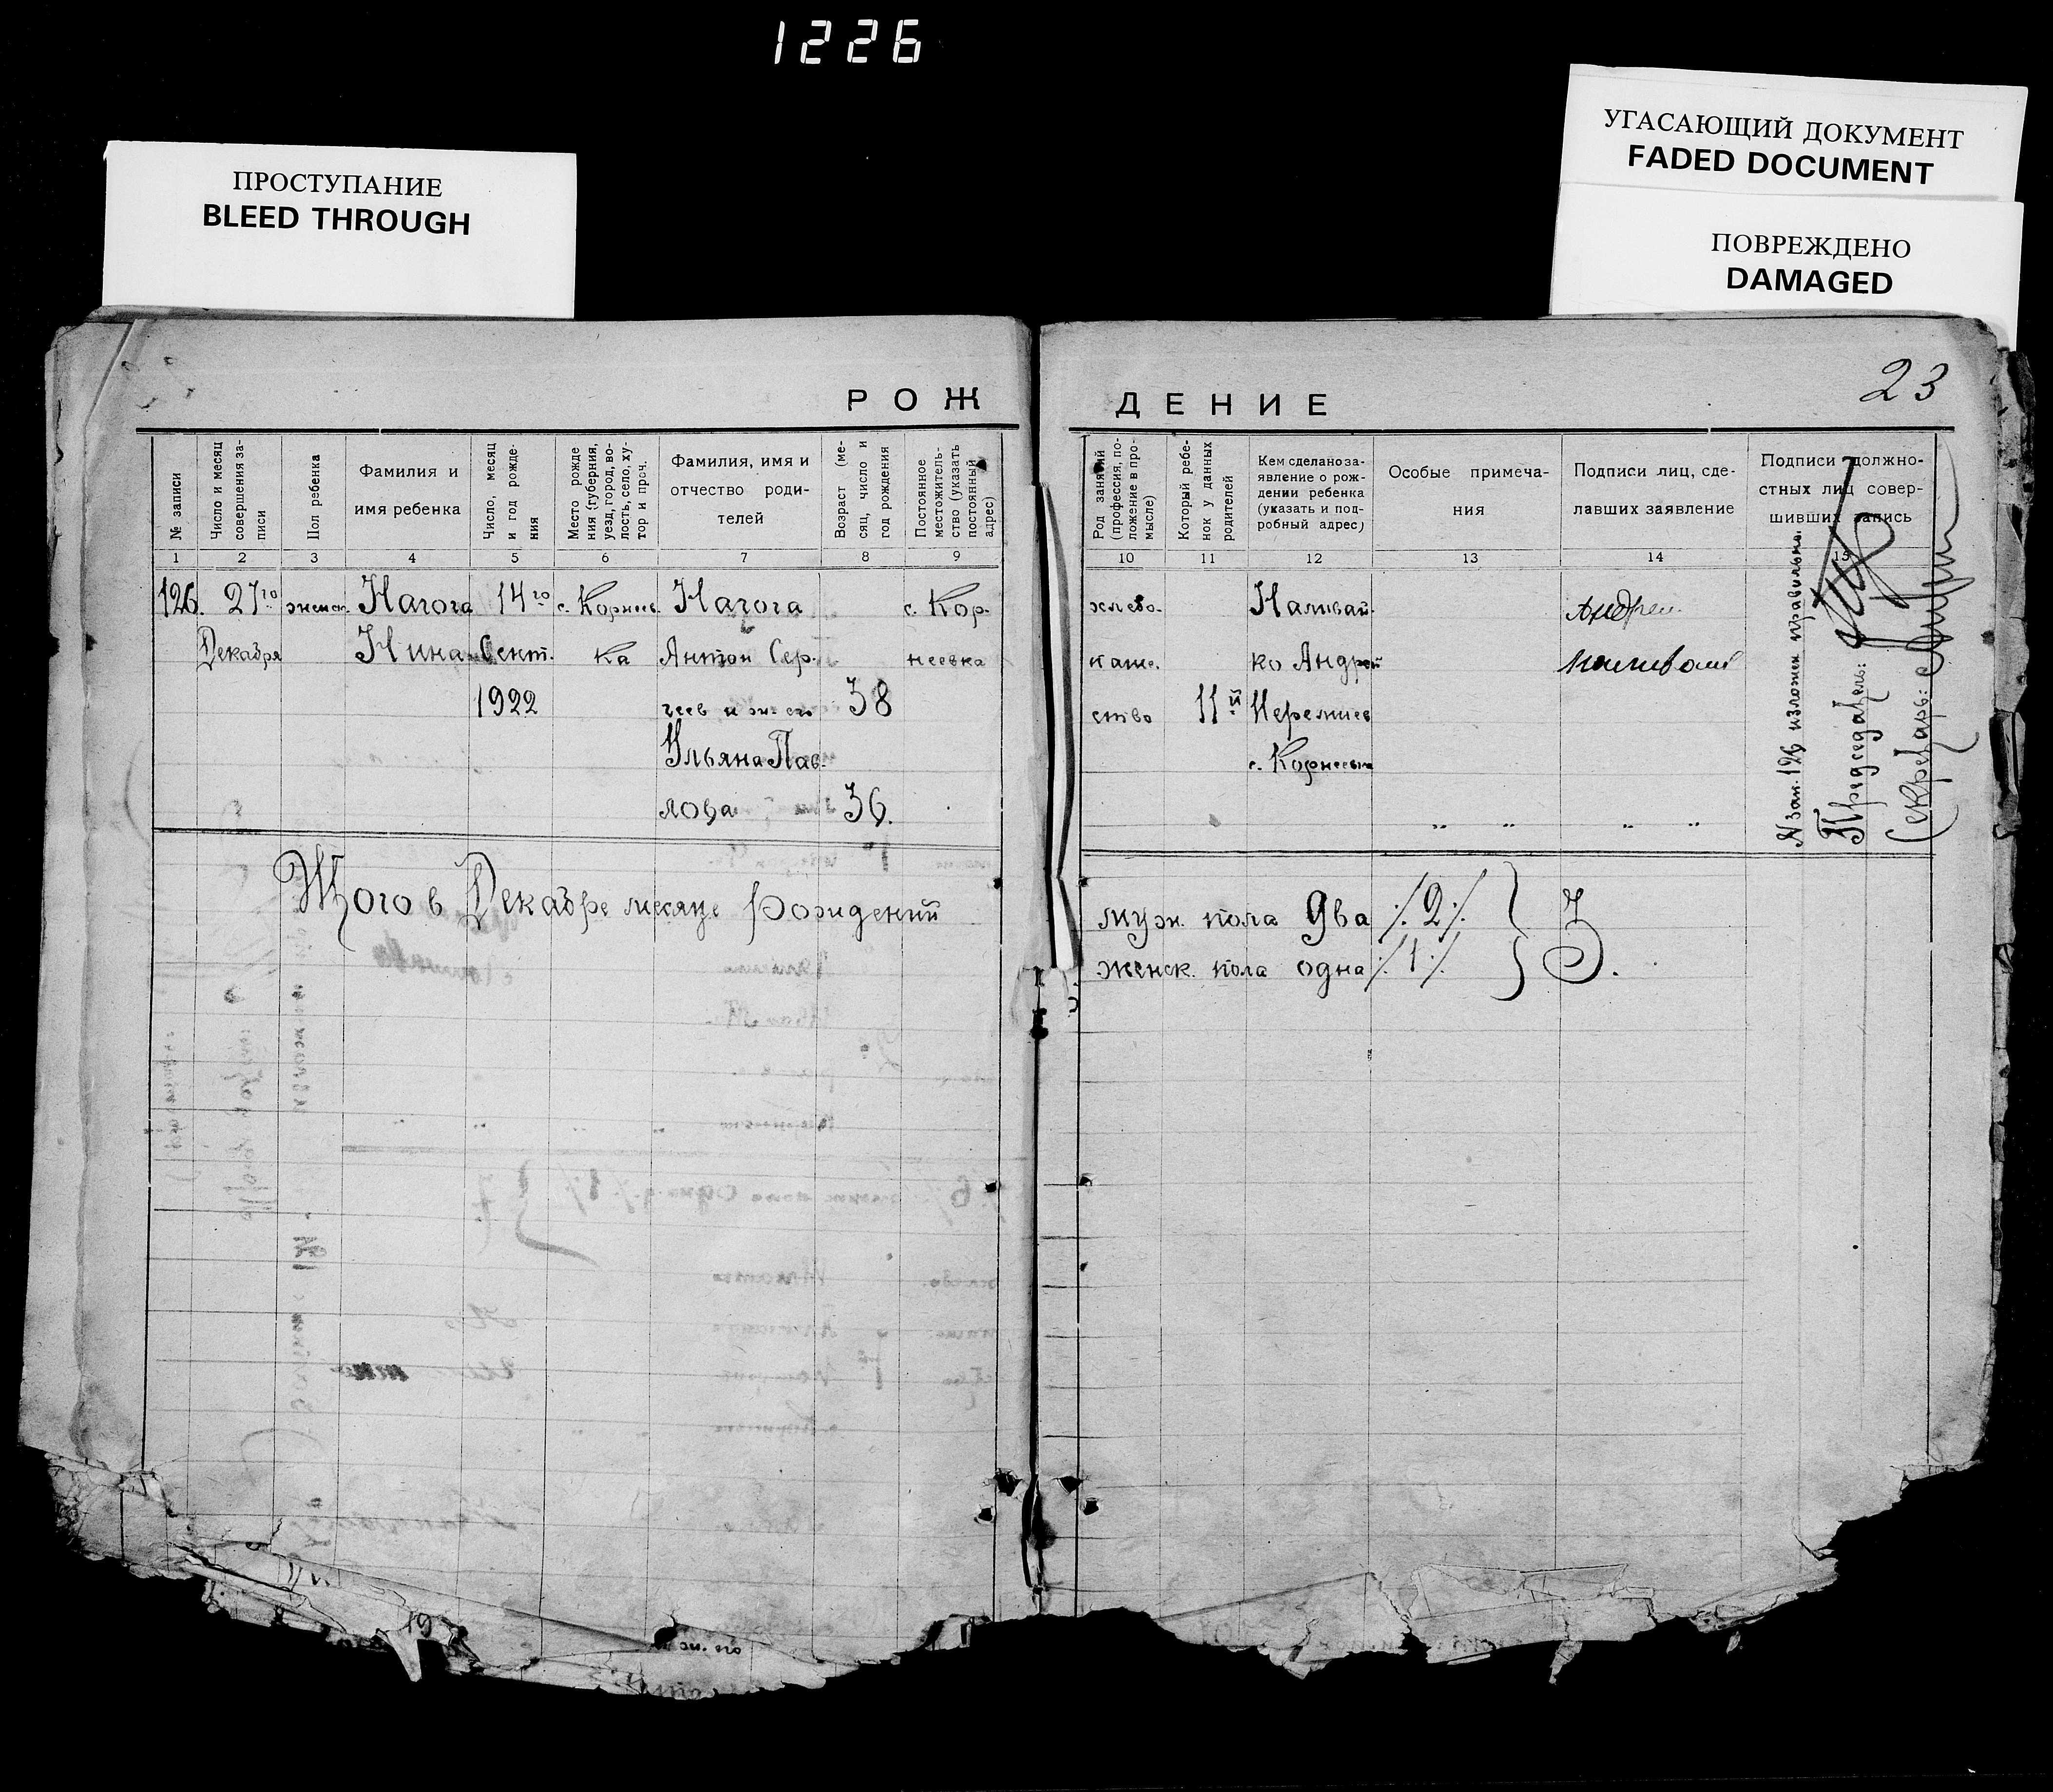 1226
ПРОСТУПАНИЕ
BLEED THROUGH
УГАСАЮЩИЙ ДОКУМЕНТ
FADED DOCUMENT
ПОВРЕЖДЕНО
DAMAGED
23
РОЖ
ДЕНИЕ
№ записи
Число и месяц
совершения за-
писи
Пол ребенка
Фамилия и
имя ребенка
Число, месяц
и год рожде-
ния
Место рожде
ния (губерния,
уезд, город, во-
лость, село, ху-
тор и проч.
Фамилия, имя и
отчество роди-
телей
Возраст (ме-
сяц, число и
год рождения
Постоянное
местожитель-
ство (указать
постоянный
адрес)
Род занятий
(профессия, по-
ложение в про-
мысле)
Который ребе-
нок у данных
родителей
Кем сделано за-
явление о рож-
дении ребенка
(указать и под-
робный адрес)
Особые примеча-
ния
Подписи лиц, сде-
лавших заявление
Подписи должно-
стных лиц совер-
шивших запись
1 2 3 4 5 6 7 8 9
10 11 12 13 14 15
126. 27го женск. Нагога 14го с. Корнеев. Нагога с. Кор-
Декабря Нина Сент. ка Антон Сер- неевка
1922 геев и ж. его 38
Ульяна Пав-
лова 36.
хлебо- Наливай-
паше- ко Андрей
ство 11й Иеремиев
с. Корнеевка
Андрей
№ зап. 126 изложен правильно.
Председатель:
Секретарь:
Итого в Декабре месяце рождений
муж. пола два ./. 2 ./. } 3
женск. пола одна ./. 1 ./. } 3.